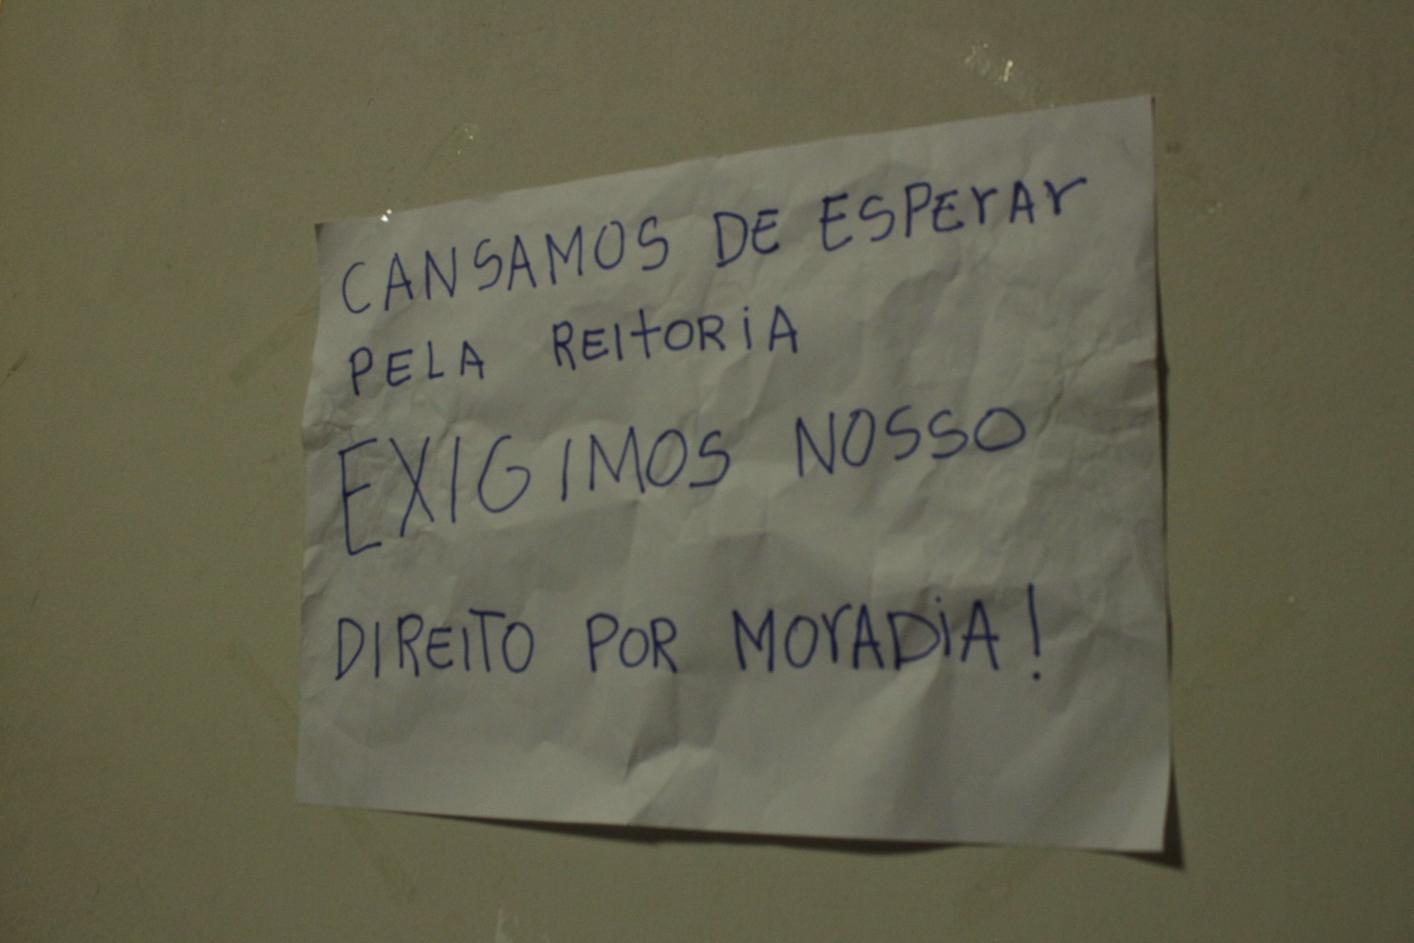 CANSAMOS DE ESPERAR
PELA REITORIA
EXIGIMOS NOSSO
DIREITO POR MORADIA!